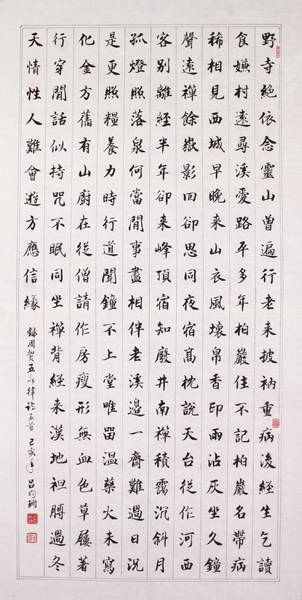 野寺絕依念靈山曾遍行老來披衲重病後經生乞讀
食嫌村遠尋溪愛路平多年柏巖住不記柏巖名帶病
稀相見西城早晚來山衣風壞帛香印雨沾灰坐久鐘
聲遠禪餘嶽影回卻思同夜宿高枕說天台從作河西
客別離經半年卻來峰頂宿知廢井南禪積靄沉斜月
孤燈照落泉何當閒事盡相伴老溪邊一齋難過日況
是更照糧養力時行道聞鐘不上堂唯留溫藥火未寫
化金方舊有山廚在從僧請作房瘦形無血色草屨著
行穿閒話似持咒不眠同坐禪背經來漢地袒膊過冬
天情性人難會遊方應信緣
錄周賀五言律詩五首 己亥年 呂均